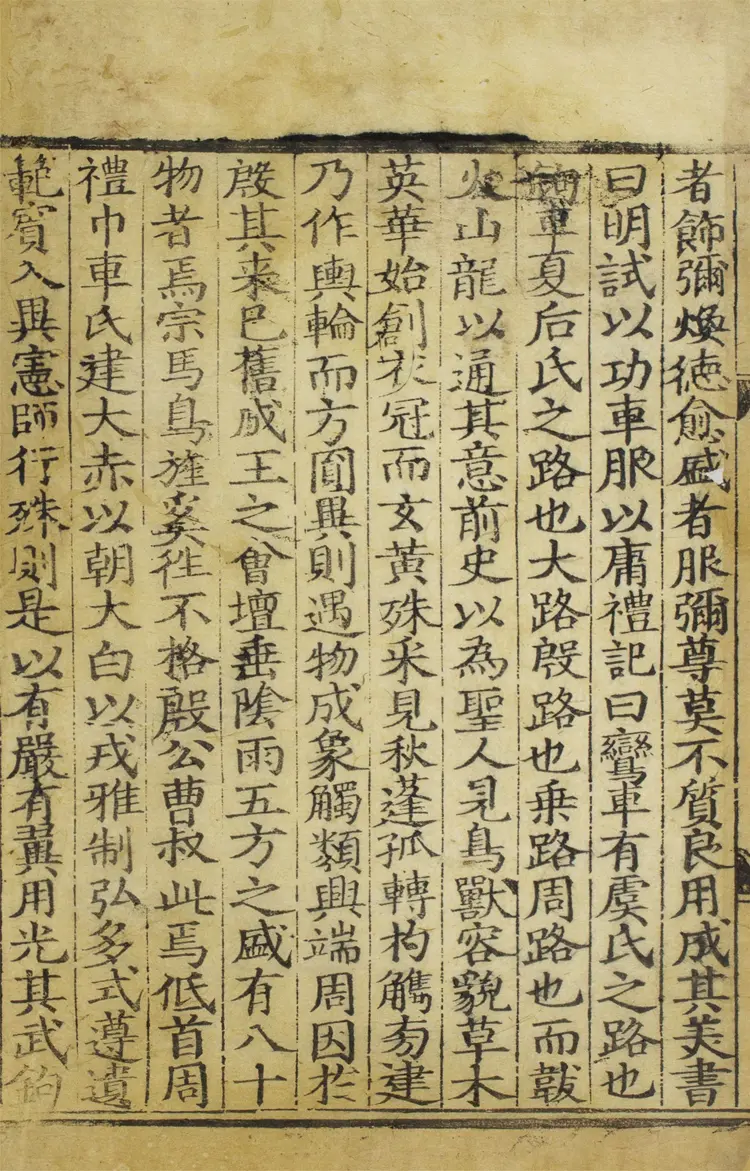 者飾彌煥德愈盛者服彌尊莫不質良用成其美書
曰明試以功車服以庸禮記曰鸞車有虞氏之路也
鉤車夏后氏之路也大路殷路也乗路周路也而韍
火山龍以通其意前史以為聖人見鳥獸容貌草木
英華始創衣冠而玄黃殊采見秋蓬孤轉杓觿旁建
乃作輿輪而方圓異則遇物成象觸類興端周因於
殷其来已舊成王之會壇垂陰雨五方之盛有八十
物者焉宗馬鳥旌奚徃不格殷公曹叔此焉低首周
禮巾車氏建大赤以朝大白以戎雅制弘多式遵遺
範賓入異憲師行殊則是以有嚴有翼用光其武鉤